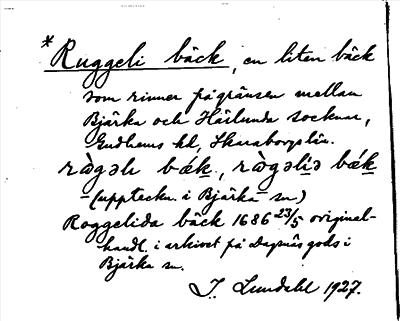 * Ruggeli bäck, en liten bäck
som rinner på gränsen mellan
Bjärka och Härlunda socknar,
Gudhems hd, Skaraborgs län.
bäk, bäk
(uppteckn. i Bjärka sn)
Roggelida bäck 1686 23/5 original-
handl. i arkivet på Dagsnäs gods i
Bjärka sn.
J. Lundahl 1927.